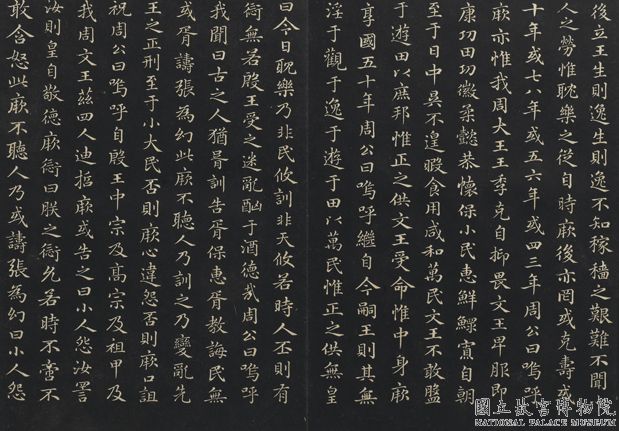 後立王生則逸生則逸不知稼穡之艱難不聞
人之勞惟耽樂之從自時厥後亦罔或克壽或
十年或七八年或五六年或四三年周公曰嗚呼
厥亦惟我周大王王季克自抑畏文王卑服即
康功田功徽柔懿恭懷保小民惠鮮鰥寡自朝
至于日中昃不遑暇食用咸和萬民文王不敢盤
于遊田以庶邦惟正之供文王受命惟中身厥
享國五十年周公曰嗚呼繼自今嗣王則其無
淫于觀于逸于遊于田以萬民惟正之供無皇
曰今日耽樂乃非民攸訓非天攸若時人丕則有
愆無若殷王受之迷亂酗于酒德哉周公曰嗚呼
我聞曰古之人猶胥訓告胥保惠胥教誨民無
或胥譸張為幻此厥不聽人乃訓之乃變亂先
王之正刑至于小大民否則厥心違怨否則厥口詛
祝周公曰嗚呼自殷王中宗及高宗及祖甲及
我周文王茲四人迪哲厥或告之曰小人怨汝詈
汝則皇自敬德厥愆曰朕之愆允若時不啻不
敢含怒此厥不聽人乃或譸張為幻曰小人怨
國立故宮博物院
NATIONAL PALACE MUSEUM